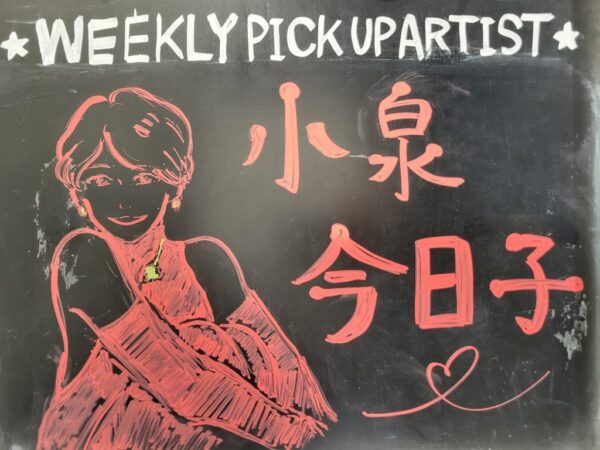 ★WEEKLY PICK UP ARTIST★
小泉
今日子